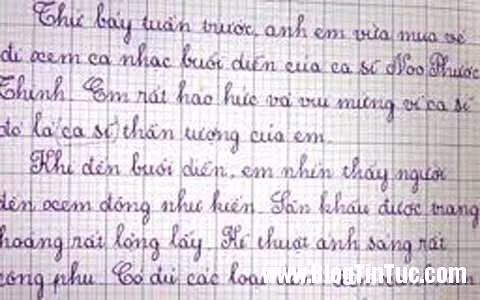 Thứ bảy tuần trước, anh em vừa mua vé
đi xem ca nhạc buổi diễn của ca sĩ Noo Phước
Thịnh. Em rất háo hức và vui mừng vì ca sĩ
đó là ca sĩ thần tượng của em.
Khi đến buổi diễn, em nhìn thấy người
đến xem đông như kiến. Sân khấu được trang
hoàng rất lộng lẫy. Kĩ thuật ánh sáng rất
công phu. Có đủ các loại
www.blogTinTuc.com